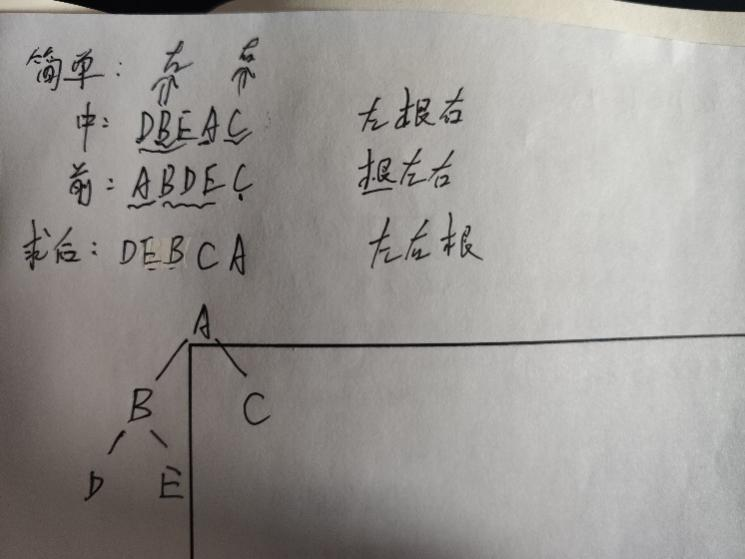 简单: 左 右
中: DBEAC 左根右
前: ABDEC 根左右
求后: DEBCA 左右根
A
B C
D E